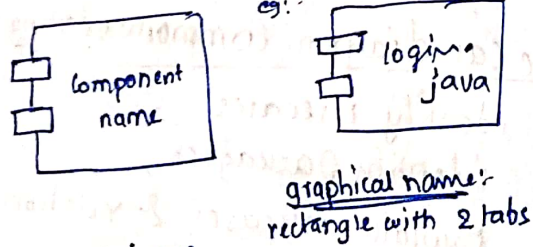 eg:-
Component
name
login.
java
graphical name:-
rectangle with 2 tabs